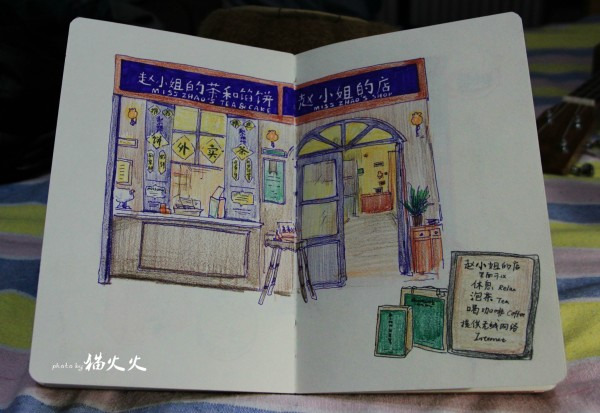 赵小姐的茶和馅饼
MISS ZHAO'S TEA & CAKE
赵小姐的店
MISS ZHAO'S SHOP
外卖
饼
茶
赵小姐的店
休息 Relax
泡茶 Tea
喝咖啡 Coffee
提供无线网络
Internet
photo by 猫火火